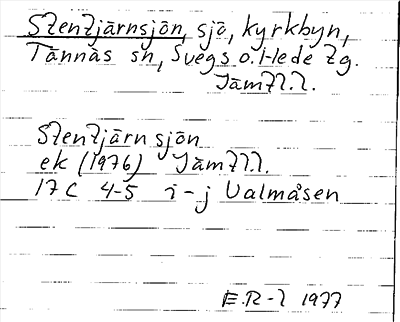 Stentjärnsjön, sjö, kyrkbyn,
Tännäs sn, Svegs o. Hede tg.
Jämtl.l.
Stentjärnsjön
ek (1976) Jämtl.l.
17 C 4-5 i-j Valmåsen
E.R-l 1977